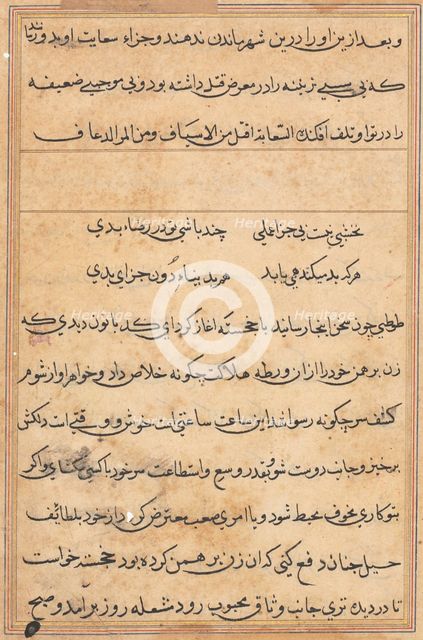 و بعد ازین او را درین شهر ماندن ندهند و جزاء سعایت او بدو رسانند
که بی سببی نرینه را در معرض قتل داشته بود و بی موجبی ضعیفه
را در توا و تلف افکند السعایة اقتل من الاسیاف ومن الذعاف
نخشبی نیست بی جزا عملی چند باشی تو در رضاء بدی
هر که بد میکند همی یابد هم بدنیاء دون جزای بدی
طوطی چون سخن اینجا رسانید با خجسته آغاز کرد ای کدبانو دیدی که
زن برهمن خود را از ان ورطه هلاکت چگونه خلاص داد و خواهر او از شوم
کشف سر چگونه رسوا شد این ساعت ساعتی است خوش و وقتی است دلکش
برخیز و جانب دوست شو و بقدر وسع و استطاعت سر خود با کسی مگشای و اکر
بتو کاری مخوف محیط شود و یا امری صعب معترض کردد از خود بلطائف
حیل چنان دفع کنی که ان زن برهمن کرده بود خجسته خواست
تا در تری جانب وثاق محبوب رود شعله روز برآمد و صبح
Heritage
Heritage
Heritage
Heritage
©